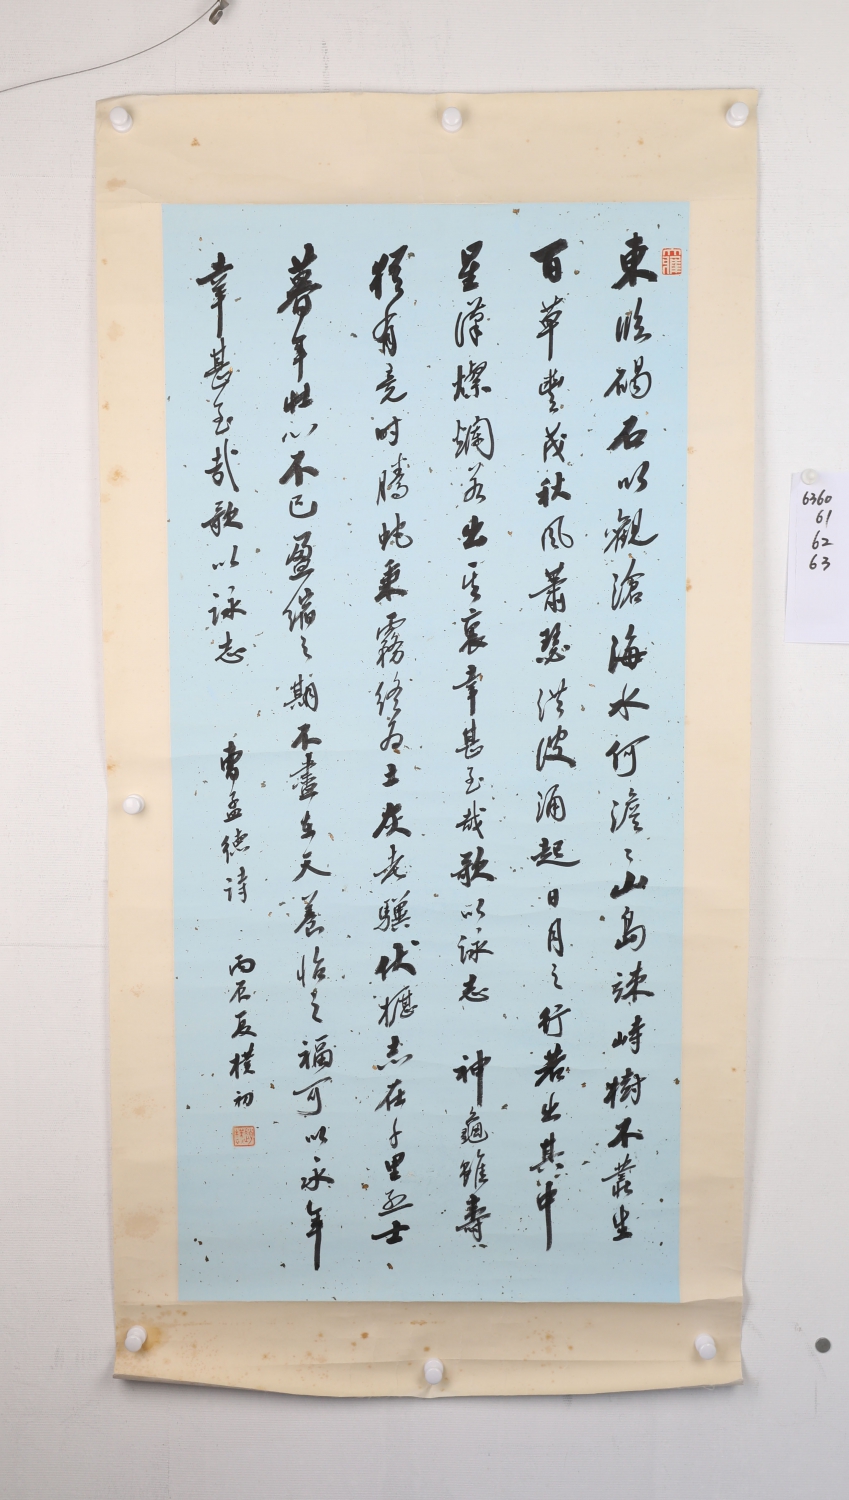 東臨碣石以觀滄海水何澹〻山島竦峙樹不叢生
百草豐茂秋風蕭瑟洪波涌起日月之行若出其中
星漢燦爛若出其裏幸甚至哉歌以詠志 神龜雖壽
猶有竟時騰蛇乘霧終為土灰老驥伏櫪志在千里烈士
暮年壯心不已盈縮之期不盡在天養怡之福可以永年
幸甚至哉歌以詠志 曹孟德詩 丙辰夏樸初
6360
61
62
63